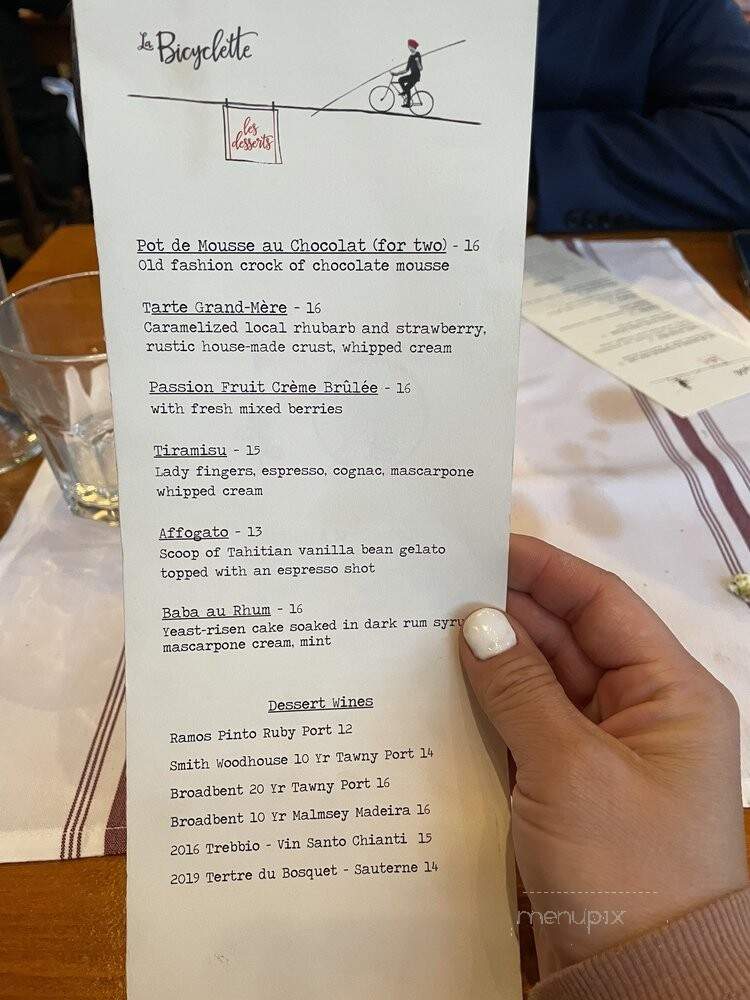 La Bicyclette
les
desserts
Pot de Mousse au Chocolat (for two) - 16
Old fashion crock of chocolate mousse
Tarte Grand-Mère - 16
Caramelized local rhubarb and strawberry,
rustic house-made crust, whipped cream
Passion Fruit Crème Brûlée - 16
with fresh mixed berries
Tiramisu - 15
Lady fingers, espresso, cognac, mascarpone
whipped cream
Affogato - 13
Scoop of Tahitian vanilla bean gelato
topped with an espresso shot
Baba au Rhum - 16
Yeast-risen cake soaked in dark rum syru
mascarpone cream, mint
Dessert Wines
Ramos Pinto Ruby Port 12
Smith Woodhouse 10 Yr Tawny Port 14
Broadbent 20 Yr Tawny Port 16
Broadbent 10 Yr Malmsey Madeira 16
2016 Trebbio - Vin Santo Chianti 15
2019 Tertre du Bosquet - Sauterne 14
menupix